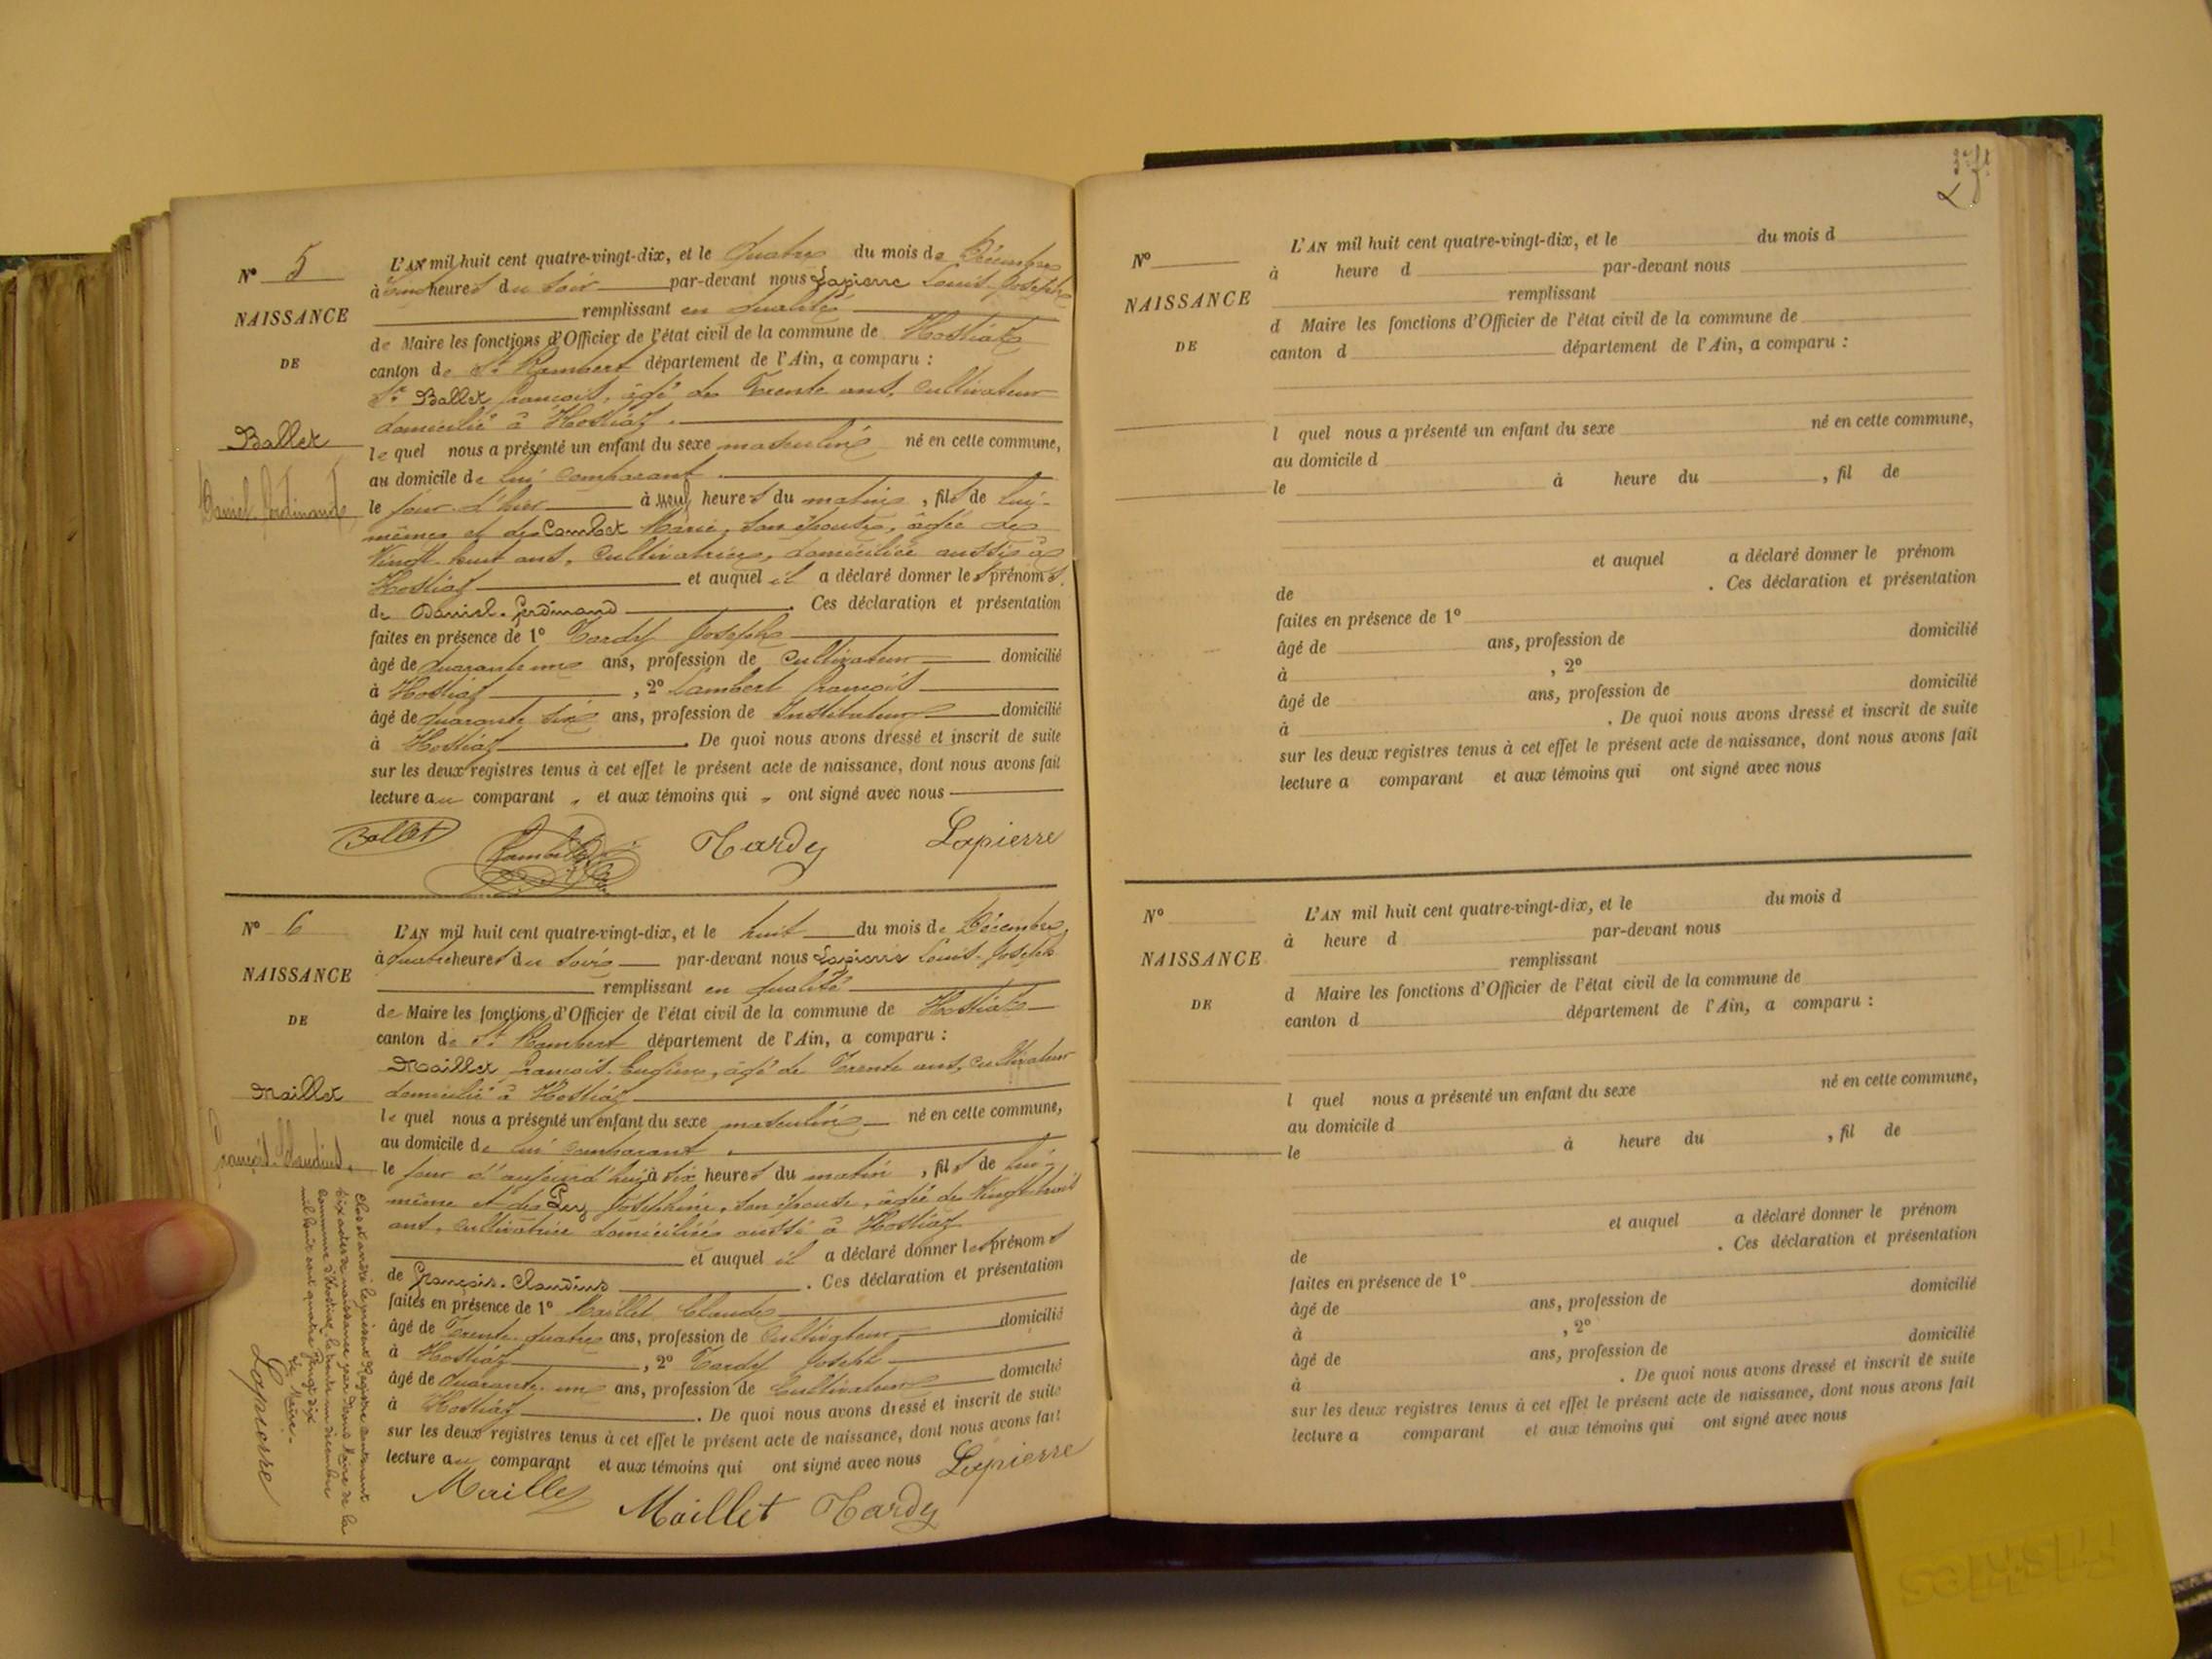 N° 5
NAISSANCE
DE
Ballet
Daniel Ferdinand
L'AN mil huit cent quatre-vingt-dix, et le quatre du mois de Décembre
à cinq heures du soir par-devant nous Lapierre Louis-Joseph
remplissant en qualité
de Maire les fonctions d'Officier de l'état civil de la commune de Hostiaz
canton de St Rambert département de l'Ain, a comparu :
Sr Ballet françois, âgé de Trente ans, cultivateur
domicilié à Hostiaz.
lequel nous a présenté un enfant du sexe masculin né en cette commune,
au domicile de lui comparant.
le jour d'hier à neuf heures du matin, fils de lui-
même et de Combet Marie, son épouse, âgée de
Vingt-huit ans, cultivatrice, domiciliée aussi à
Hostiaz et auquel il a déclaré donner les prénoms
de Daniel-ferdinand. Ces déclaration et présentation
faites en présence de 1° Tardy Joseph
âgé de quarante un ans, profession de Cultivateur domicilié
à Hostiaz, 2° Lambert françois
âgé de quarante six ans, profession de Instituteur domicilié
à Hostiaz. De quoi nous avons dressé et inscrit de suite
sur les deux registres tenus à cet effet le présent acte de naissance, dont nous avons fait
lecture au comparant et aux témoins qui ont signé avec nous
Ballet Lambert Tardy Lapierre
N° 6
NAISSANCE
DE
Maillet
françois-Claudius.
L'AN mil huit cent quatre-vingt-dix, et le huit du mois de Décembre,
à quatre heures du soir par-devant nous Lapierre Louis-Joseph
remplissant en qualité
de Maire les fonctions d'Officier de l'état civil de la commune de Hostiaz
canton de St Rambert département de l'Ain, a comparu :
Maillet françois-Eugène, âgé de Trente ans, cultivateur
domicilié à Hostiaz
lequel nous a présenté un enfant du sexe masculin né en cette commune,
au domicile de lui comparant.
le jour d'aujourd'hui à dix heures du matin, fils de lui-
même et de Josephine, son épouse, âgée de Vingt-huit
ans, cultivatrice domiciliée aussi à Hostiaz
et auquel il a déclaré donner les prénoms
de françois-Claudius. Ces déclaration et présentation
faites en présence de 1° Maillet Claude
âgé de Trente-quatre ans, profession de Cultivateur domicilié
à Hostiaz, 2° Tardy Joseph
âgé de quarante-un ans, profession de Cultivateur domicilié
à Hostiaz. De quoi nous avons dressé et inscrit de suite
sur les deux registres tenus à cet effet le présent acte de naissance, dont nous avons fait
lecture au comparant et aux témoins qui ont signé avec nous
Maillet Maillet Tardy Lapierre
Clos et arrêté le présent Registre contenant
six actes de naissance par nous Maire de la
commune d'Hostiaz, le trente un décembre
mil huit cent quatre vingt dix
Le Maire.
Lapierre
N°
NAISSANCE
DE
L'AN mil huit cent quatre-vingt-dix, et le du mois d
à heure d par-devant nous
remplissant
d Maire les fonctions d'Officier de l'état civil de la commune de
canton d département de l'Ain, a comparu :
l quel nous a présenté un enfant du sexe né en cette commune,
au domicile d
le à heure du , fil de
et auquel a déclaré donner le prénom
de . Ces déclaration et présentation
faites en présence de 1°
âgé de ans, profession de domicilié
à , 2°
âgé de ans, profession de domicilié
à . De quoi nous avons dressé et inscrit de suite
sur les deux registres tenus à cet effet le présent acte de naissance, dont nous avons fait
lecture a comparant et aux témoins qui ont signé avec nous
N°
NAISSANCE
DE
L'AN mil huit cent quatre-vingt-dix, et le du mois d
à heure d par-devant nous
remplissant
d Maire les fonctions d'Officier de l'état civil de la commune de
canton d département de l'Ain, a comparu :
l quel nous a présenté un enfant du sexe né en cette commune,
au domicile d
le à heure du , fil de
et auquel a déclaré donner le prénom
de . Ces déclaration et présentation
faites en présence de 1°
âgé de ans, profession de domicilié
à , 2°
âgé de ans, profession de domicilié
à . De quoi nous avons dressé et inscrit de suite
sur les deux registres tenus à cet effet le présent acte de naissance, dont nous avons fait
lecture a comparant et aux témoins qui ont signé avec nous